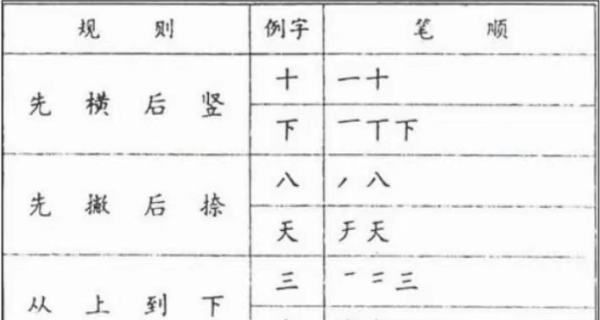 规则 例字 笔顺
先横后竖 十 一十
下 一丅下
先撇后捺 八 丿八
天 天
从上到下 三 一二三